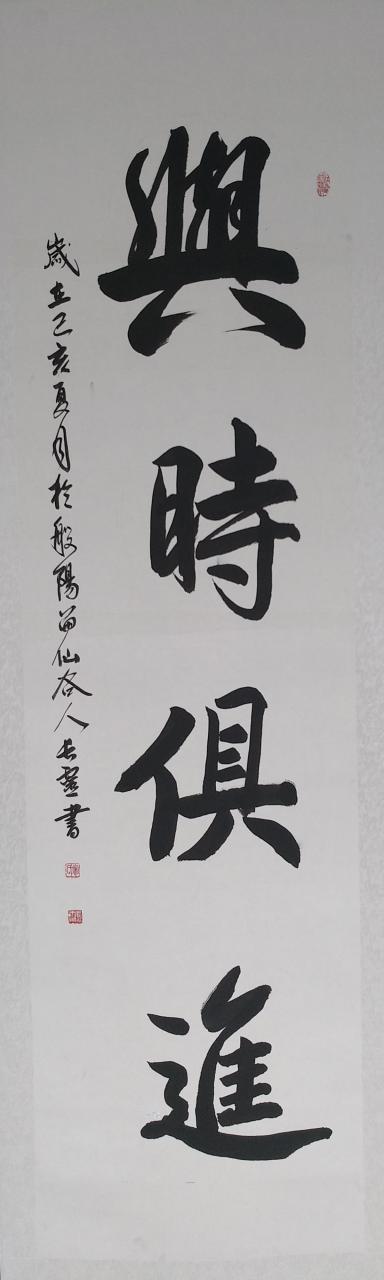 與時俱進
歲在己亥夏月於般陽留仙谷人長靈書